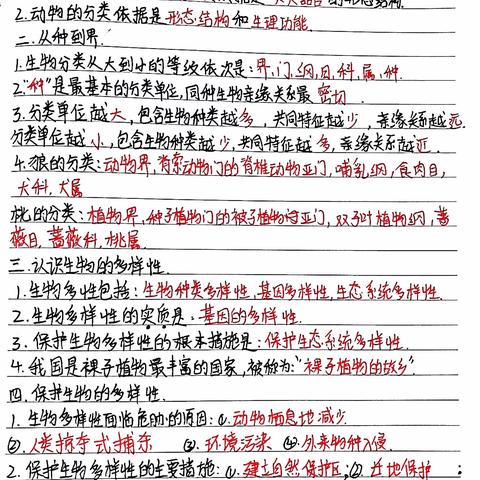 2.动物的分类依据是形态结构和生理功能.
二.从种到界.
1.生物分类从大到小的等级依次是:界,门,纲,目,科,属,种.
2."种"是最基本的分类单位,同种生物亲缘关系最 密切 .
3.分类单位越大,包含生物种类越多,共同特征越少,亲缘关系越远.
分类单位越小,包含生物种类越少,共同特征越多,亲缘关系越近.
4.狼的分类:动物界,脊索动物门的脊椎动物亚门,哺乳纲,食肉目,
犬科,犬属
桃的分类:植物界,种子植物门的被子植物亚门,双子叶植物纲,蔷
薇目,蔷薇科,桃属.
三.认识生物的多样性.
1.生物多性包括:生物种类多样性,基因多样性,生态系统多样性.
2.生物多样性的实质是:基因的多样性.
3.保护生物多样性的根本措施是:保护生态系统多样性.
4.我国是裸子植物最丰富的国家,被称为:"裸子植物的故乡"
四.保护生物的多样性.
1.生物多样性面临危胁的原因:①.动物栖息地减少.
②.人类掠夺式捕杀 ③.环境污染 ④.外来物种入侵.
2.保护生物多样性的主要措施:①.建立自然保护区;②迁地保护 ;